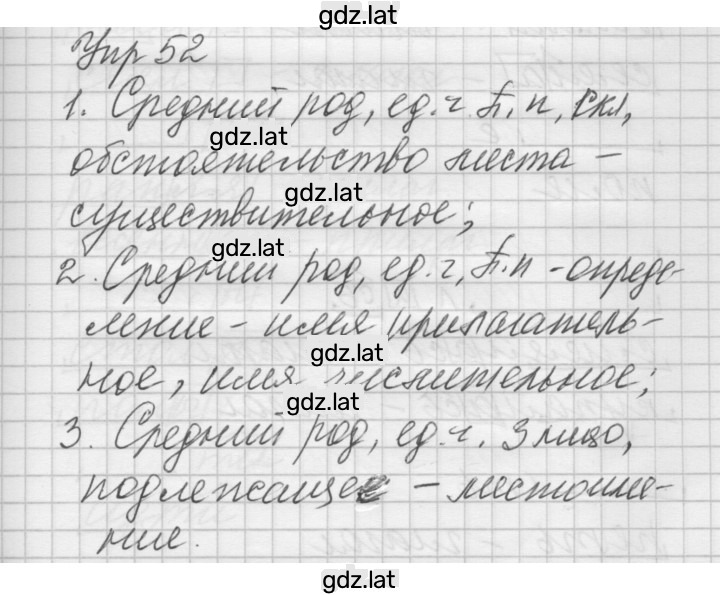 gdz.lat
Упр 52
1. Средний род, ед. ч. П. п, I скл,
gdz.lat
обстоятельство места –
gdz.lat
существительное;
gdz.lat
2. Средний род, ед. ч, П. п - опреде-
ление - имя прилагатель-
gdz.lat
ное, имя числительное;
gdz.lat
3. Средний род, ед. ч. 3 лицо,
подлежащее – местоиме-
ние.
gdz.lat